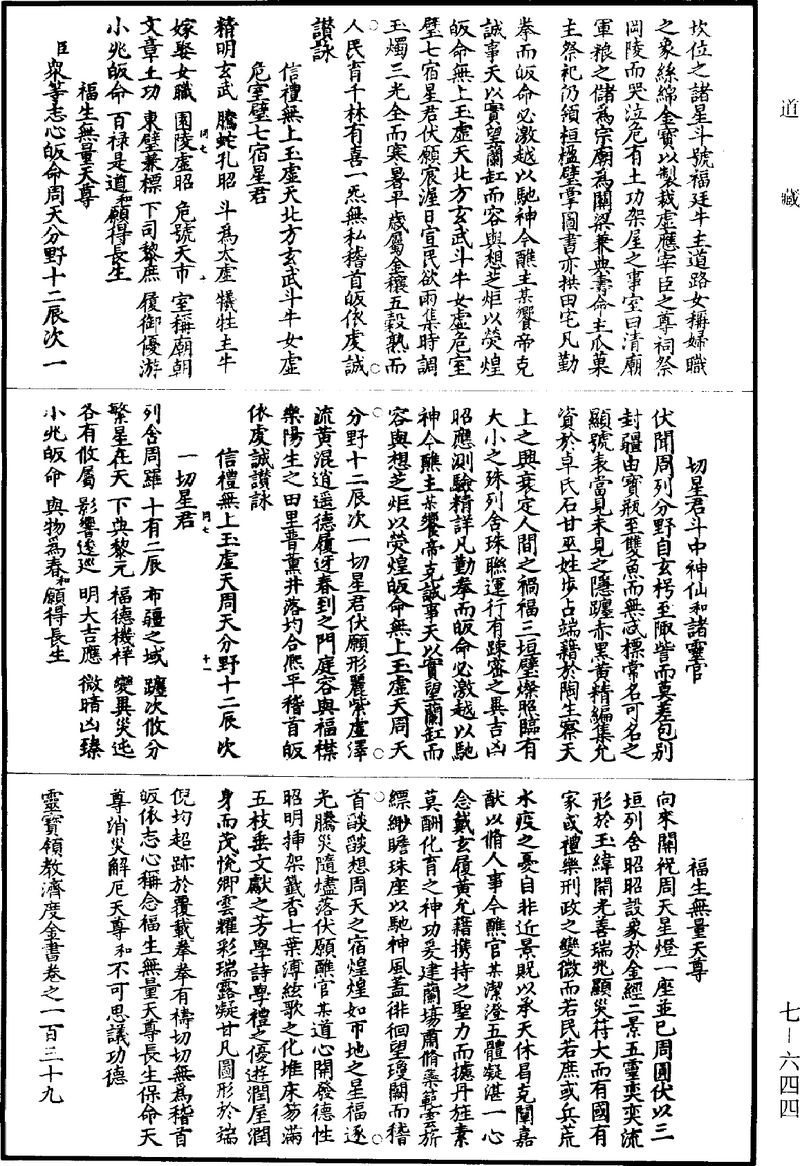 道藏
七－六四四
坎位之諸星斗號福廷牛主道路女稱婦職
之象絲綿金寶以製裁虛應宰臣之尊祠祭
岡陵而哭泣危有土功架屋之事室曰清廟
軍粮之儲為宗廟為關梁兼典壽命主瓜菓
主祭祀仍領桓楹壁掌圖書亦拱田宅凡勤
拳而皈命必激越以馳神今醮主某饗帝克
誠事天以實望蘭缸而容與想芝炬以熒煌
皈命無上玉虛天北方玄武斗牛女虛危室
壁七宿星君伏願宸渥日宣民欲雨集時調
玉燭三光全而寒暑平歲屬金穰五穀熟而
人民育千林有喜一炁無私稽首皈依虔誠
讚詠
信禮無上玉虛天北方玄武斗牛女虛
危室壁七宿星君
精明玄武 騰蛇孔昭 斗為太虛 犧牲主牛
嫁娶女職 園陵虛昭 危號天市 室稱廟朝
文章土功 東壁兼標 下司黎庶 履御優游
小兆皈命 百祿是遒和願得長生
福生無量天尊
臣衆等志心皈命周天分野十二辰次一
切星君斗中神仙和諸靈官
伏聞周列分野自玄枵至陬訾而莫差包別
封疆由寶瓶至雙魚而無忒標常名可名之
顯號表當見未見之隱躔赤黑黃精編集允
資於卓氏石甘巫姓步占端籍於陶生察天
上之興衰定人間之禍福三垣璧燦照臨有
大小之殊列舍珠聯運行有踈密之異吉凶
昭應測驗精詳凡勤拳而皈命必激越以馳
神今醮主某饗帝克誠事天以實望蘭缸而
容與想芝炬以熒煌皈命無上玉虛天周天
分野十二辰次一切星君伏願形麗紫虛繹
流黃混逍遥德履迓春到之門庭容與福襟
樂陽生之田里普薰井落均合熈平稽首皈
依虔誠讚詠
信禮無上玉虛天周天分野十二辰次
一切星君
列舍周羅 十有二辰 布疆之域 躔次攸分
繁星在天 下典黎元 福德機祥 變異災迍
各有攸屬 影響逡巡 明大吉應 微暗凶臻
小兆皈命 與物為春和願得長生
福生無量天尊
向來關祝周天星燈一座並已周圓伏以三
垣列舍昭昭設象於金經二景五靈奕奕流
形於玉緯開光善瑞兆顯災符大而有國有
家或禮樂刑政之變微而若民若庶或兵荒
水疫之憂自非近景貺以承天休曷克闡嘉
猷以脩人事今醮官某潔澄五體凝湛一心
念戴玄履黃允籍携持之聖力而摅丹旌素
莫酬化育之神功爰建蘭場肅脩蘂範雲旂
縹緲瞻珠座以馳神風蓋徘徊望瓊闕而稽
首燄燄想周天之宿煌煌如帀地之星福逐
光騰災隨燼落伏願醮官某道心開發德性
昭明揷架籖香七葉溥絃歌之化堆床笏滿
五枝垂文獻之芳學詩學禮之優遊潤屋潤
身而茂悅卿雲耀彩瑞露凝甘凡圖形於端
倪均超跡於覆載拳拳有禱切切無為稽首
皈依志心稱念福生無量天尊長生保命天
尊消災解厄天尊和不可思議功德
靈寶領教濟度金書卷之一百三十九